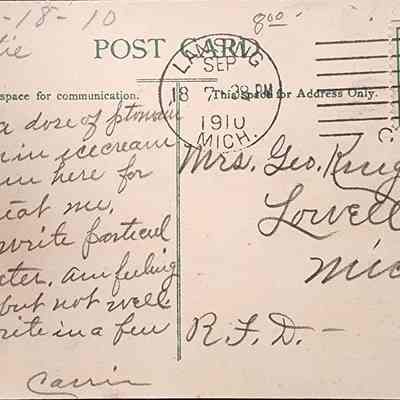 -18-10
8 00
POST CARD
LANSING
SEP
18 7-30 PM
1910
MICH.
space for communication.
This Space for Address Only.
a dose of ptomain
in icecream
here for
treat me,
write particul
am feeling
but not well
write in a few
Carrie
Mrs. Geo. Knig
Lowell
Mic
R.F.D. -